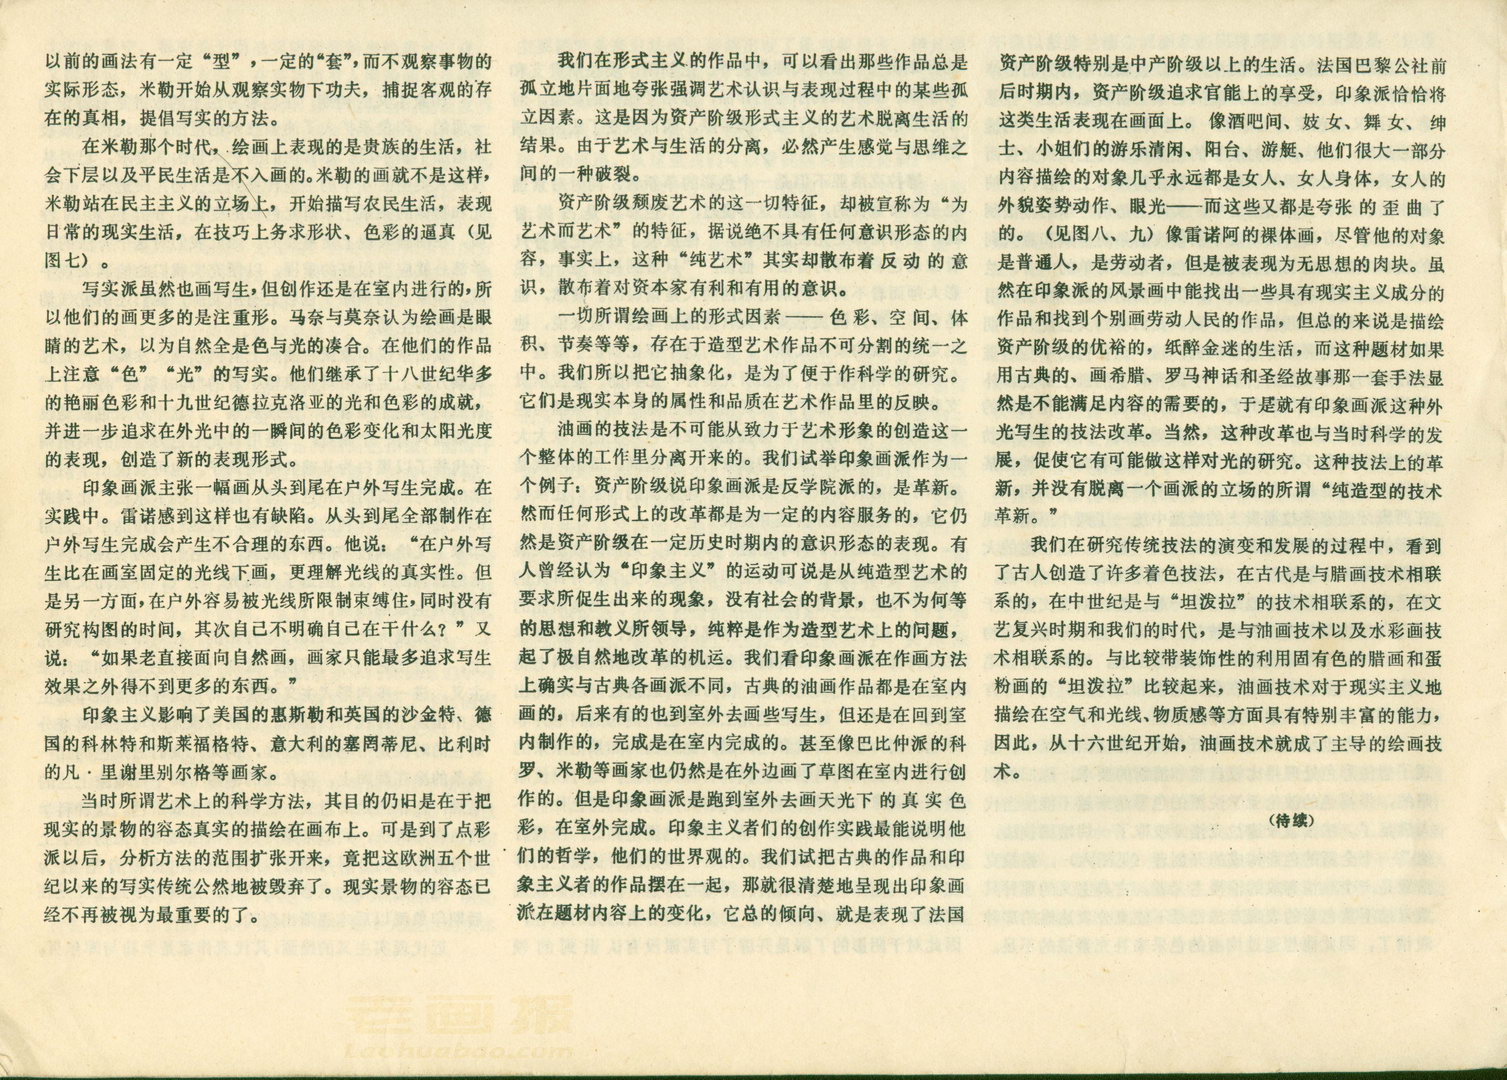 以前的画法有一定“型”，一定的“套”，而不观察事物的
实际形态，米勒开始从观察实物下功夫，捕捉客观的存
在的真相，提倡写实的方法。
在米勒那个时代，绘画上表现的是贵族的生活，社
会下层以及平民生活是不入画的。米勒的画就不是这样，
米勒站在民主主义的立场上，开始描写农民生活，表现
日常的现实生活，在技巧上务求形状、色彩的逼真（见
图七）。
写实派虽然也画写生，但创作还是在室内进行的，所
以他们的画更多的是注重形。马奈与莫奈认为绘画是眼
睛的艺术，以为自然全是色与光的凑合。在他们的作品
上注意“色”“光”的写实。他们继承了十八世纪华多
的艳丽色彩和十九世纪德拉克洛亚的光和色彩的成就，
并进一步追求在外光中的一瞬间的色彩变化和太阳光度
的表现，创造了新的表现形式。
印象画派主张一幅画从头到尾在户外写生完成。在
实践中。雷诺感到这样也有缺陷。从头到尾全部制作在
户外写生完成会产生不合理的东西。他说：“在户外写
生比在画室固定的光线下画，更理解光线的真实性。但
是另一方面，在户外容易被光线所限制束缚住，同时没有
研究构图的时间，其次自己不明确自己在干什么？”又
说：“如果老直接面向自然画，画家只能最多追求写生
效果之外得不到更多的东西。”
印象主义影响了美国的惠斯勒和英国的沙金特、德
国的科林特和斯莱福格特、意大利的塞罔蒂尼、比利时
的凡·里谢里别尔格等画家。
当时所谓艺术上的科学方法，其目的仍旧是在于把
现实的景物的容态真实的描绘在画布上。可是到了点彩
派以后，分析方法的范围扩张开来，竟把这欧洲五个世
纪以来的写实传统公然地被毁弃了。现实景物的容态已
经不再被视为最重要的了。
我们在形式主义的作品中，可以看出那些作品总是
孤立地片面地夸张强调艺术认识与表现过程中的某些孤
立因素。这是因为资产阶级形式主义的艺术脱离生活的
结果。由于艺术与生活的分离，必然产生感觉与思维之
间的一种破裂。
资产阶级颓废艺术的这一切特征，却被宣称为“为
艺术而艺术”的特征，据说绝不具有任何意识形态的内
容，事实上，这种“纯艺术”其实却散布着反动的意
识，散布着对资本家有利和有用的意识。
一切所谓绘画上的形式因素——色彩、空间、体
积、节奏等等，存在于造型艺术作品不可分割的统一之
中。我们所以把它抽象化，是为了便于作科学的研究。
它们是现实本身的属性和品质在艺术作品里的反映。
油画的技法是不可能从致力于艺术形象的创造这一
个整体的工作里分离开来的。我们试举印象画派作为一
个例子：资产阶级说印象画派是反学院派的，是革新。
然而任何形式上的改革都是为一定的内容服务的，它仍
然是资产阶级在一定历史时期内的意识形态的表现。有
人曾经认为“印象主义”的运动可说是从纯造型艺术的
要求所促生出来的现象，没有社会的背景，也不为何等
的思想和教义所领导，纯粹是作为造型艺术上的问题，
起了极自然地改革的机运。我们看印象画派在作画方法
上确实与古典各画派不同，古典的油画作品都是在室内
画的，后来有的也到室外去画些写生，但还是在回到室
内制作的，完成是在室内完成的。甚至像巴比仲派的科
罗、米勒等画家也仍然是在外边画了草图在室内进行创
作的。但是印象画派是跑到室外去画天光下的真实色
彩，在室外完成。印象主义者们的创作实践最能说明他
们的哲学，他们的世界观的。我们试把古典的作品和印
象主义者的作品摆在一起，那就很清楚地呈现出印象画
派在题材内容上的变化，它总的倾向、就是表现了法国
资产阶级特别是中产阶级以上的生活。法国巴黎公社前
后时期内，资产阶级追求官能上的享受，印象派恰恰将
这类生活表现在画面上。像酒吧间、妓女、舞女、绅
士、小姐们的游乐清闲、阳台、游艇、他们很大一部分
内容描绘的对象几乎永远都是女人、女人身体，女人的
外貌姿势动作、眼光——而这些又都是夸张的歪曲了
的。（见图八、九）像雷诺阿的裸体画，尽管他的对象
是普通人，是劳动者，但是被表现为无思想的肉块。虽
然在印象派的风景画中能找出一些具有现实主义成分的
作品和找到个别画劳动人民的作品，但总的来说是描绘
资产阶级的优裕的，纸醉金迷的生活，而这种题材如果
用古典的、画希腊、罗马神话和圣经故事那一套手法显
然是不能满足内容的需要的，于是就有印象画派这种外
光写生的技法改革。当然，这种改革也与当时科学的发
展，促使它有可能做这样对光的研究。这种技法上的革
新，并没有脱离一个画派的立场的所谓“纯造型的技术
革新。”
我们在研究传统技法的演变和发展的过程中，看到
了古人创造了许多着色技法，在古代是与腊画技术相联
系的，在中世纪是与“坦泼拉”的技术相联系的，在文
艺复兴时期和我们的时代，是与油画技术以及水彩画技
术相联系的。与比较带装饰性的利用固有色的腊画和蛋
粉画的“坦泼拉”比较起来，油画技术对于现实主义地
描绘在空气和光线、物质感等方面具有特别丰富的能力，
因此，从十六世纪开始，油画技术就成了主导的绘画技
术。
（待续）
老画报
Laohuabao.com